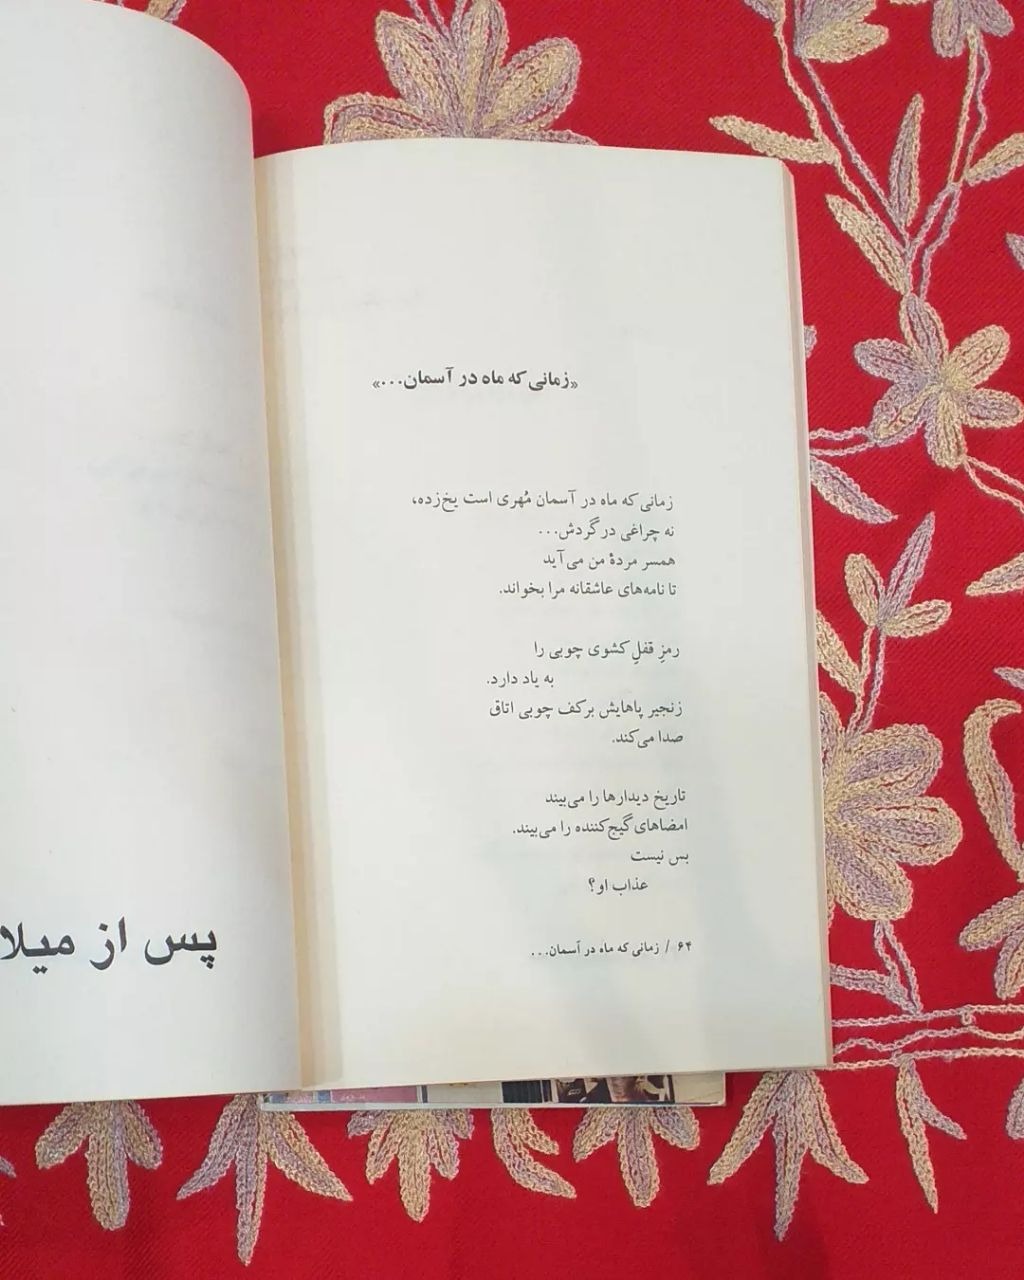 «زمانی که ماه در آسمان...»
زمانی که ماه در آسمان مُهری است یخ‌زده،
نه چراغی در گردش...
همسر مردهٔ من می‌آید
تا نامه‌های عاشقانه مرا بخواند.
رمزِ قفلِ کشوی چوبی را
به یاد دارد.
زنجیر پاهایش برکف چوبی اتاق
صدا می‌کند.
تاریخ دیدارها را می‌بیند
امضاهای گیج‌کننده را می‌بیند.
بس نیست
عذاب او؟
۶۴ / زمانی که ماه در آسمان...
پس از میلا